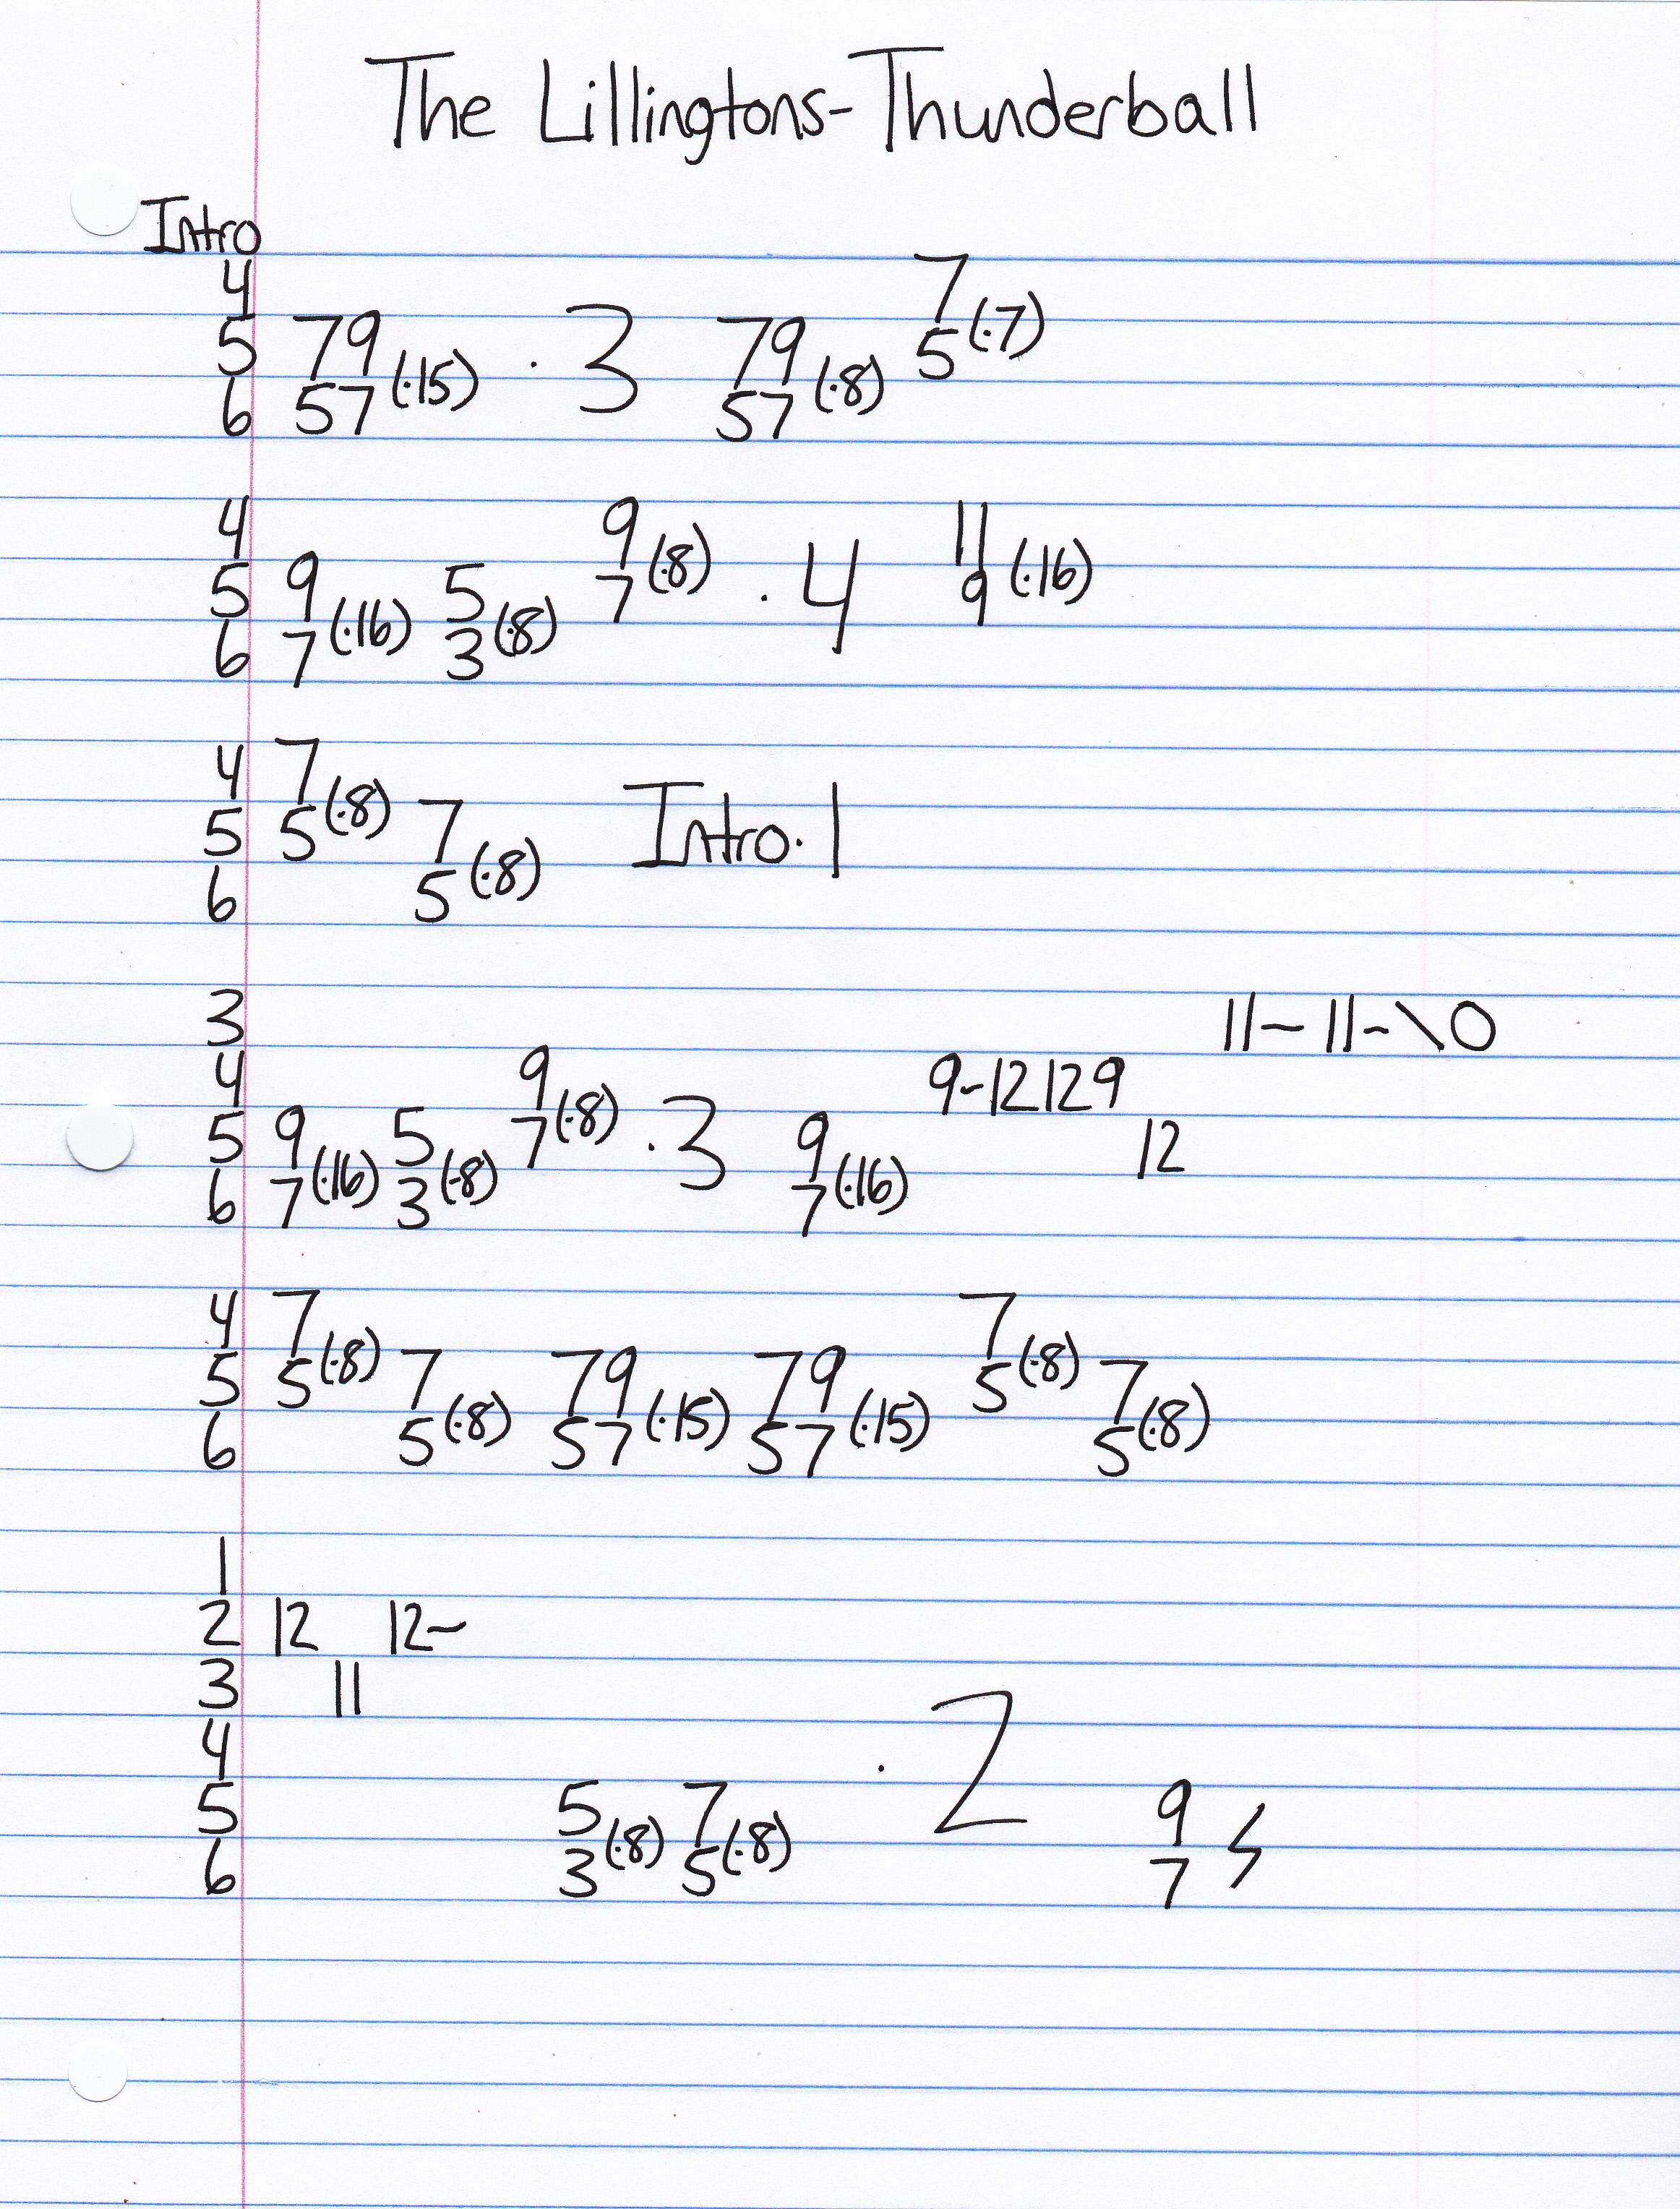 The Lillingtons-Thunderball
Intro
4 7
5 79 (·15) · 3 79 (·8) 5 (·7)
6 57 57
4 9 11
5 9 5 7 (·8) · 4 9 (·16)
6 7 (·16) 3 (·8)
4 7
5 5 (·8) 7 Intro · 1
6 5 (·8)
3 11- 11-\0
4 9 9-12129
5 9 5 7 (·8) · 3 9 12
6 7 (·16) 3 (·8) 7 (·16)
4 7 7
5 5 (·8) 7 79 79 5 (·8) 7
6 5 (·8) 57 (·15) 57 (·15) 5 (·8)
1
2 12 12-
3 11
4 · 2
5 5 7 9
6 3 (·8) 5 (·8) 7